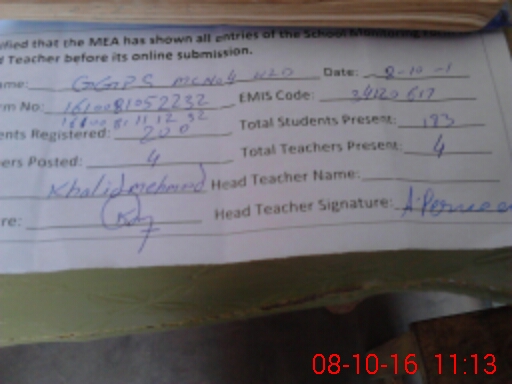 ified that the MEA has shown all entries of the School Monitoring
d Teacher before its online submission.
ame: GGPS MC No 4 Date: 8-10-1
rm No: 1610081052232 EMIS Code: 34120617
161008111232
ents Registered: 200 Total Students Present: 183
ers Posted: 4 Total Teachers Present: 4
Khalid mehmood Head Teacher Name:
re: Head Teacher Signature: A.Perveen
08-10-16 11:13